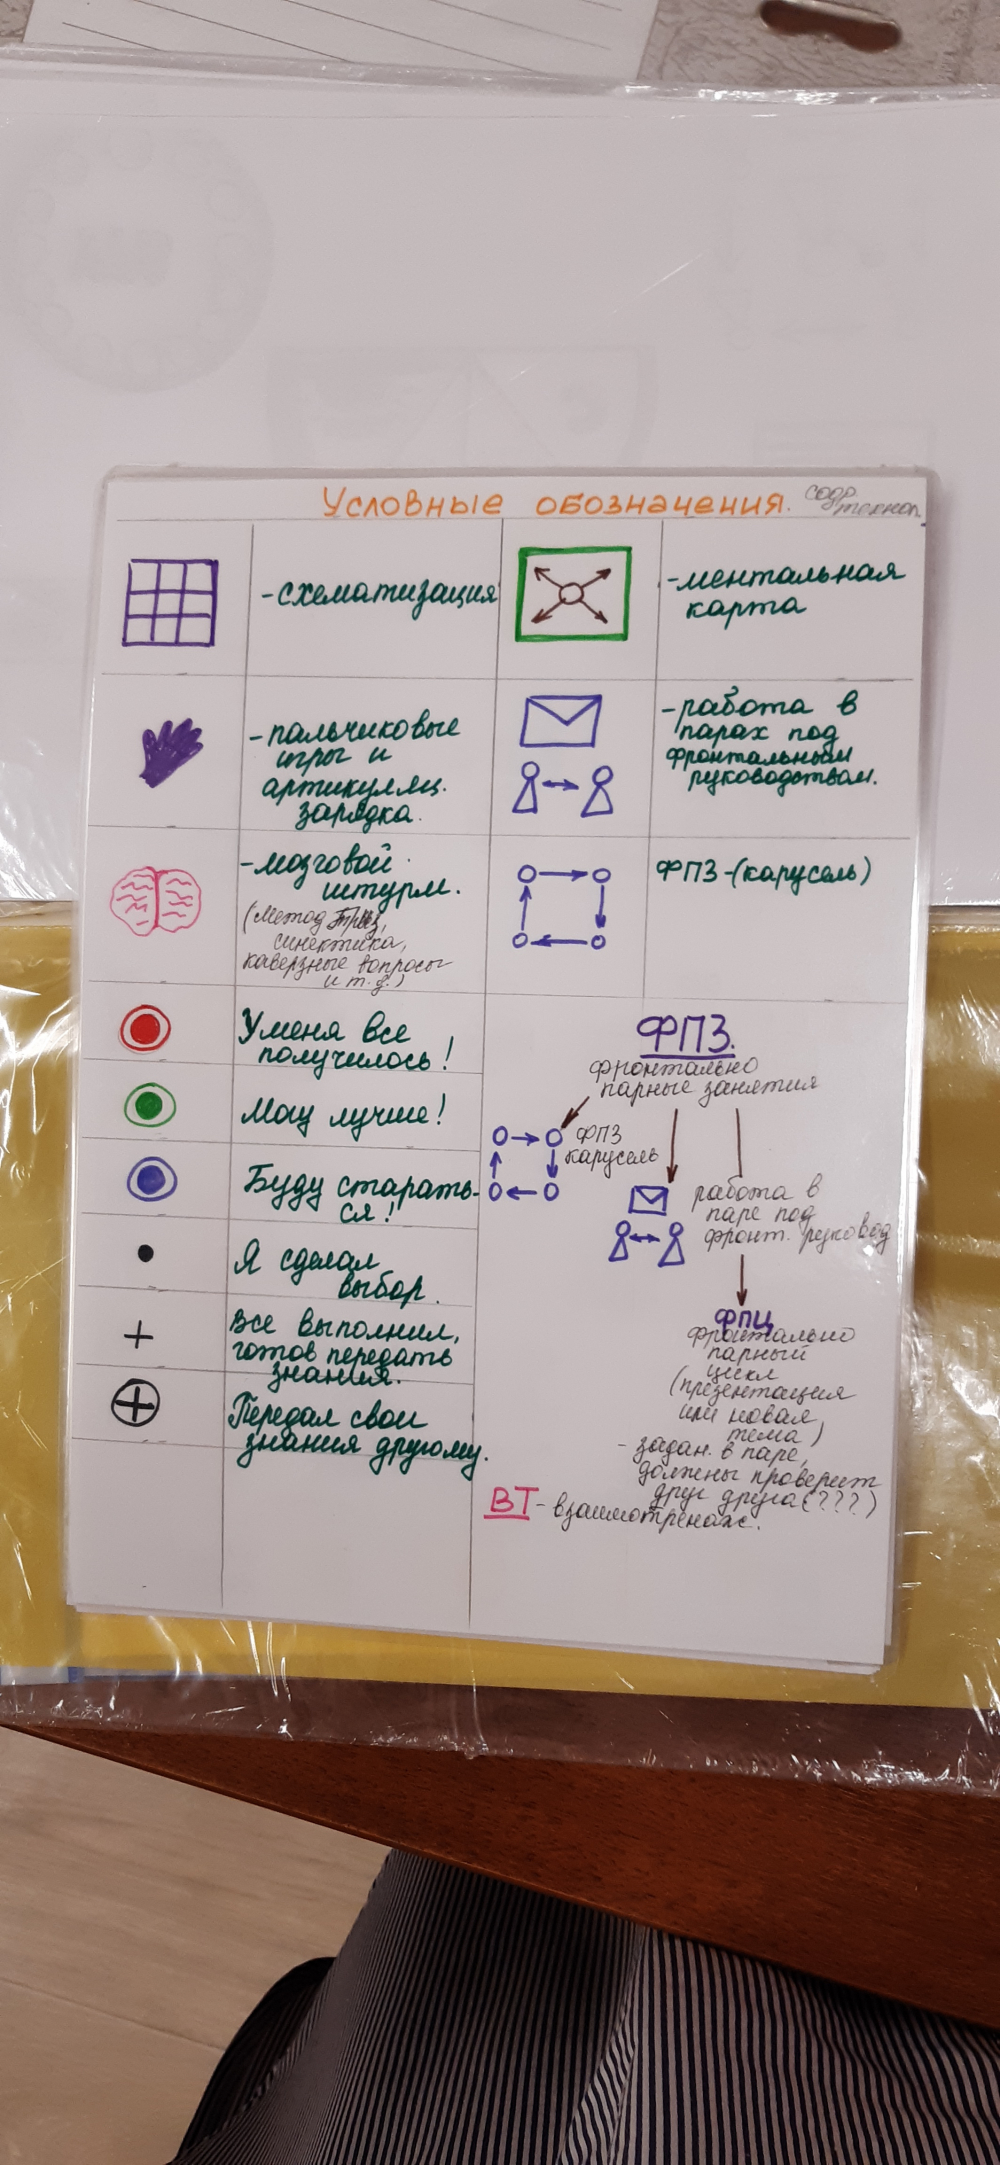 Условные обозначения.
-схематизация
-ментальная
карта
-пальчиковые
игры и
артикуляц.
зарядка.
-работа в
парах под
фронтальным
руководством.
-мозговой
штурм.
(метод
синектика,
каверзные вопросы
и т.д.)
ФПЗ-(карусель)
У меня все
получилось!
Могу лучше!
Буду старать-
ся!
Я сделал
выбор.
Все выполнил,
готов передать
знания.
Передал свои
знания другому.
ФПЗ.
фронтально
парные занятия
ФПЗ
карусель
работа в
паре под
фронт. руковод
ФПЦ
фронтально
парный
цикл
(презентация
или новая
тема)
- задан. в паре,
должны проверит
друг друга(???)
ВТ- взаимотренаж.